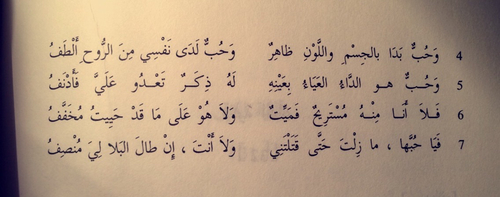 4 وَحُبٌّ بَدَا بالجِسْمِ واللَّوْنِ ظاهِرٌ وَحُبٌّ لَدَى نَفْسِي مِنَ الرُّوحِ أَلْطَفُ
5 وَحُبٌّ هو الدَّاءُ العَيَاءُ بِعَيْنِهِ لَهُ ذِكَرٌ تَعْدُو عَلَيَّ فَأَدْنَفُ
6 فَلاَ أَنا مِنْهُ مُسْتَرِيحٌ فَمَيِّتٌ وَلاَ هُوَ عَلَى مَا قَدْ حَيِيتُ مُخَفَّفُ
7 فَيَا حُبَّها ، ما زِلْتَ حَتَّى قَتَلْتَنِي وَلاَ أَنْتَ ، إِنْ طالَ البَلا لِيَ مُنْصِفُ